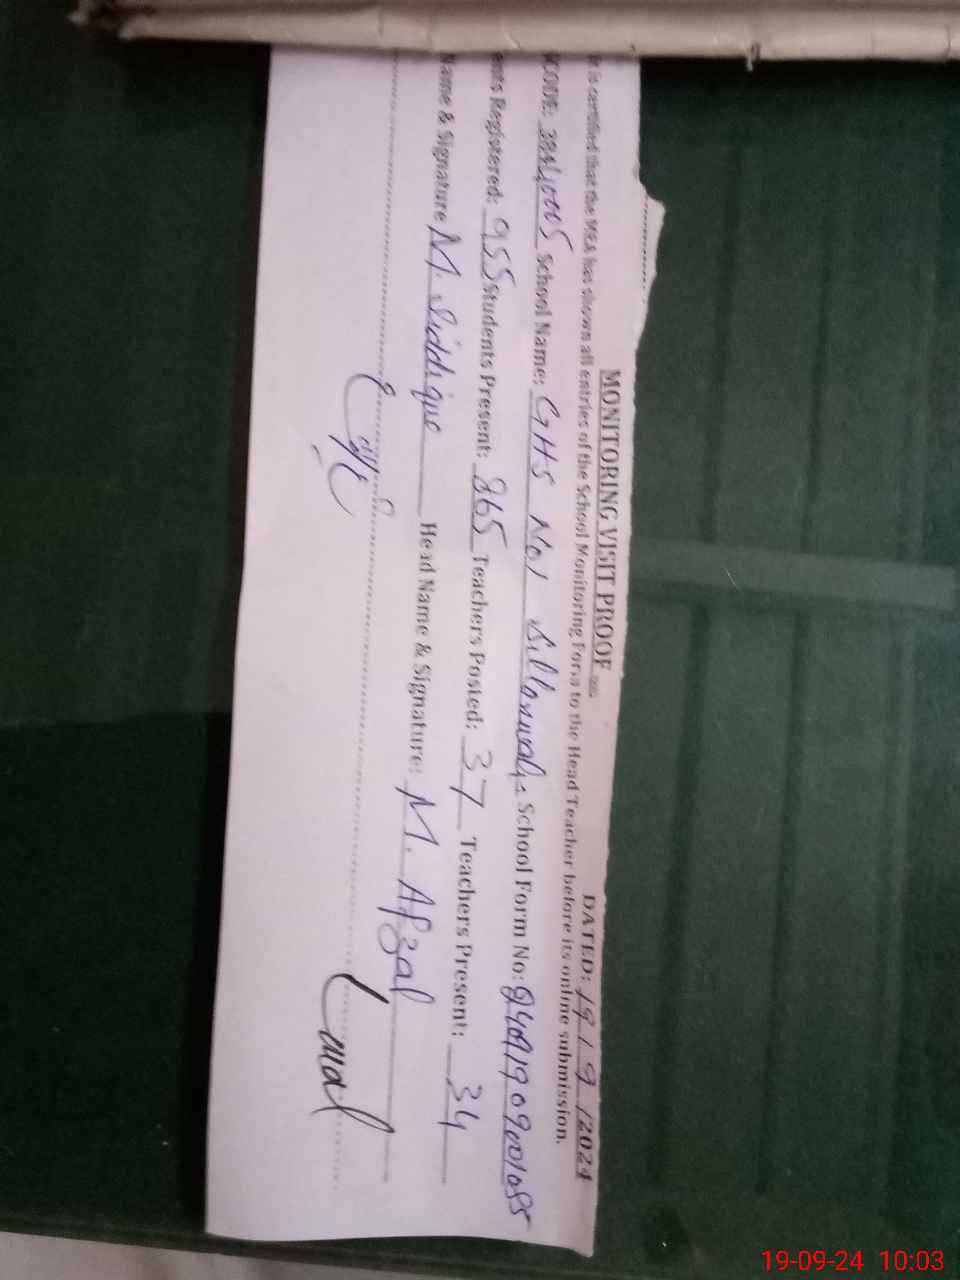 MONITORING VISIT PROOF
DATED: 19/9/2024
It is certified that the MEA has shown all entries of the School Monitoring Form to the Head Teacher before its online submission.
CODE: School Name: GHS No1 Sillanwali School Form No:
ents Registered: 955 Students Present: 865 Teachers Posted: 37 Teachers Present: 34
Name & Signature M. Siddique Head Name & Signature: M. Afzal
19-09-24 10:03